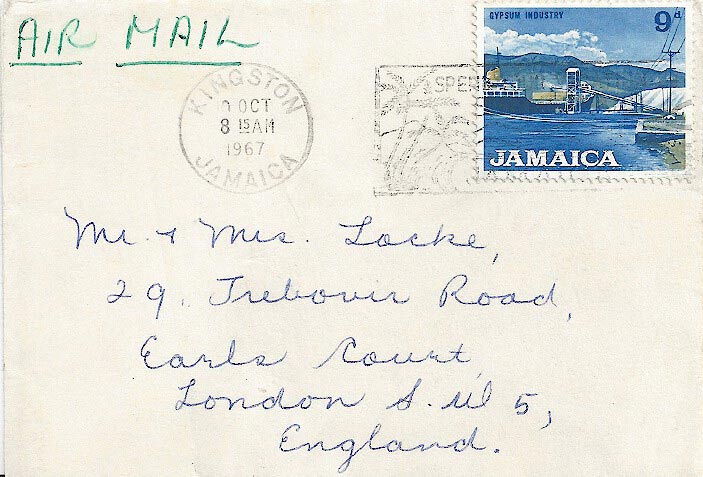 AIR MAIL
GYPSUM INDUSTRY 9d
JAMAICA
KINGSTON
OCT
8 15 AM
1967
JAMAICA
SPEN
Mr. & Mrs. Locke,
29, Trebovir Road,
Earls Court,
London S.W 5,
England.